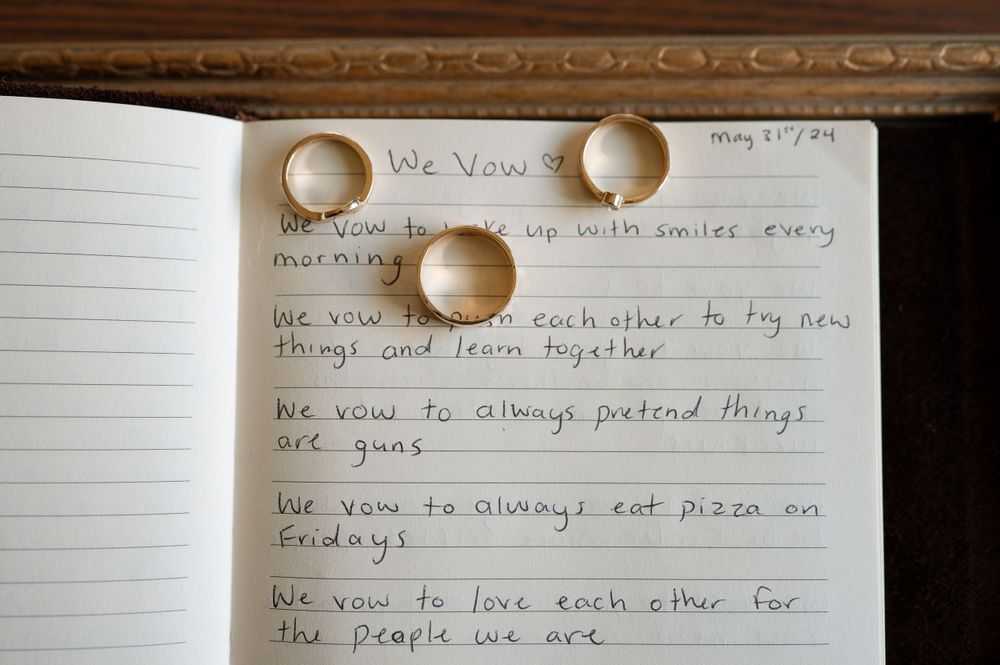 May 31st/24
We Vow ♡
We vow to wake up with smiles every
morning
We vow to push each other to try new
things and learn together
We vow to always pretend things
are guns
We vow to always eat pizza on
Fridays
We vow to love each other for
the people we are